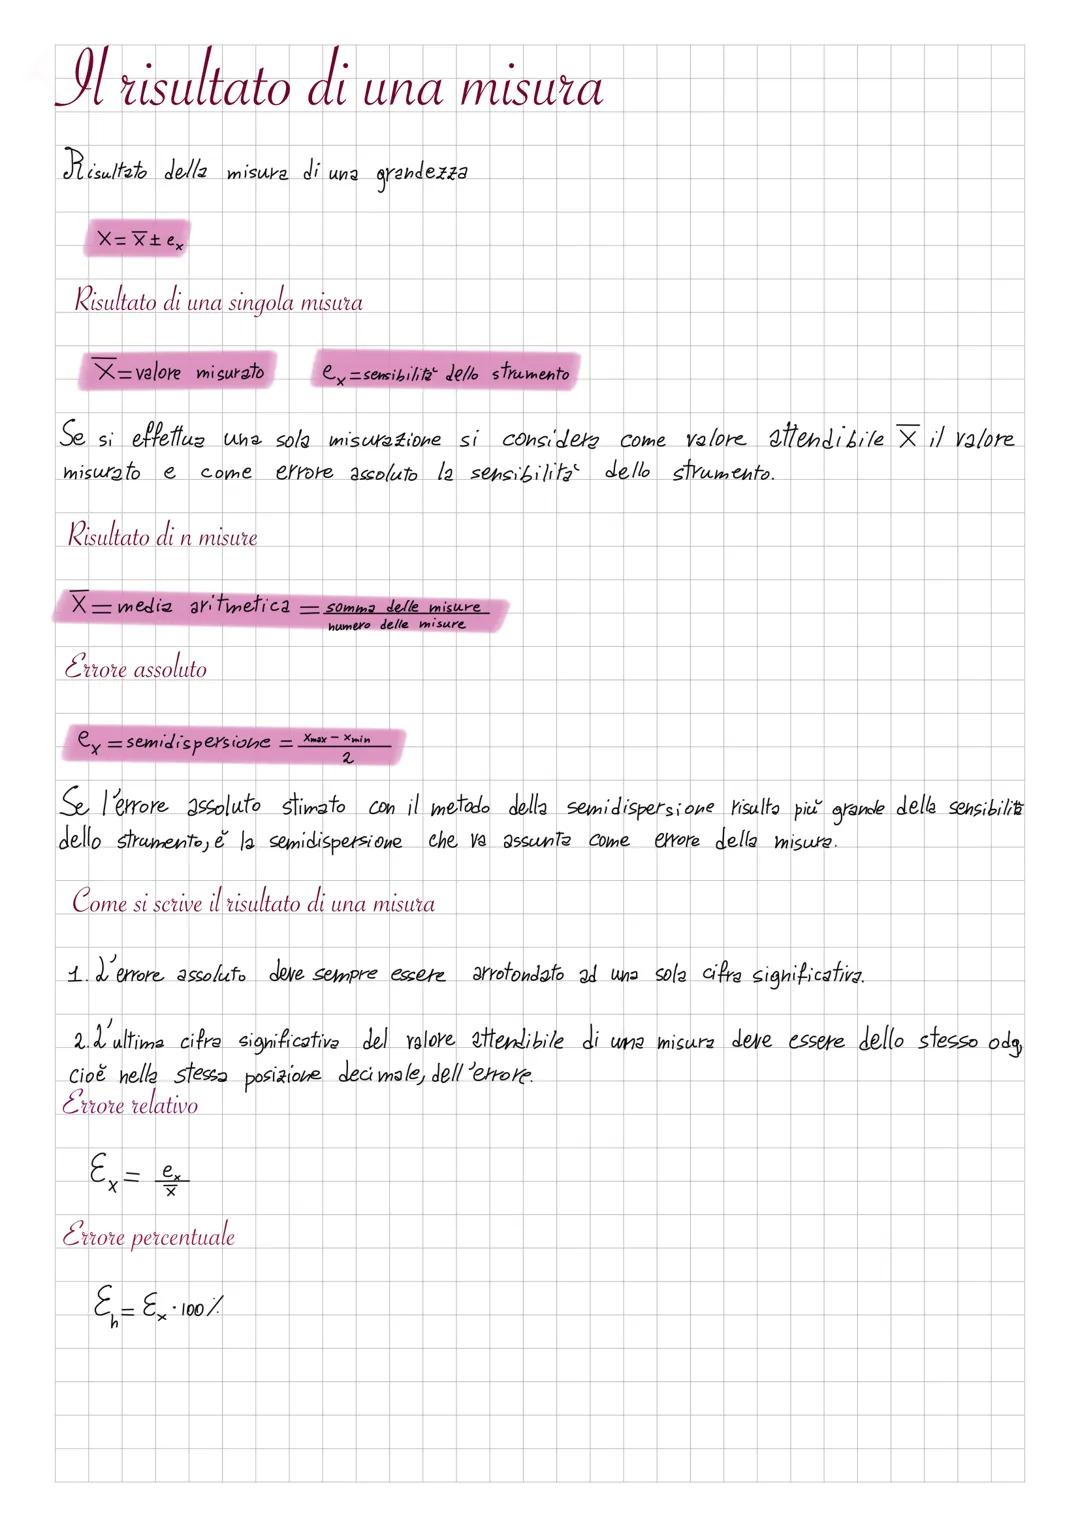 Il risultato di una misura
Risultato della misura di una grandezza
X = X̅ ± eₓ
Risultato di una singola misura
X̅ = valore misurato eₓ = sensibilità dello strumento
Se si effettua una sola misurazione si considera come valore attendibile X̅ il valore
misurato e come errore assoluto la sensibilità dello strumento.
Risultato di n misure
X̅ = media aritmetica = somma delle misure
numero delle misure
Errore assoluto
eₓ = semidispersione = Xmax - Xmin
2
Se l'errore assoluto stimato con il metodo della semidispersione risulta più grande della sensibilità
dello strumento, è la semidispersione che va assunta come errore della misura.
Come si scrive il risultato di una misura
1. L'errore assoluto deve sempre essere arrotondato ad una sola cifra significativa.
2. L'ultima cifra significativa del valore attendibile di una misura deve essere dello stesso odg,
cioè nella stessa posizione decimale, dell'errore.
Errore relativo
Ɛₓ = eₓ
x̅
Errore percentuale
Ɛₕ = Ɛₓ · 100%